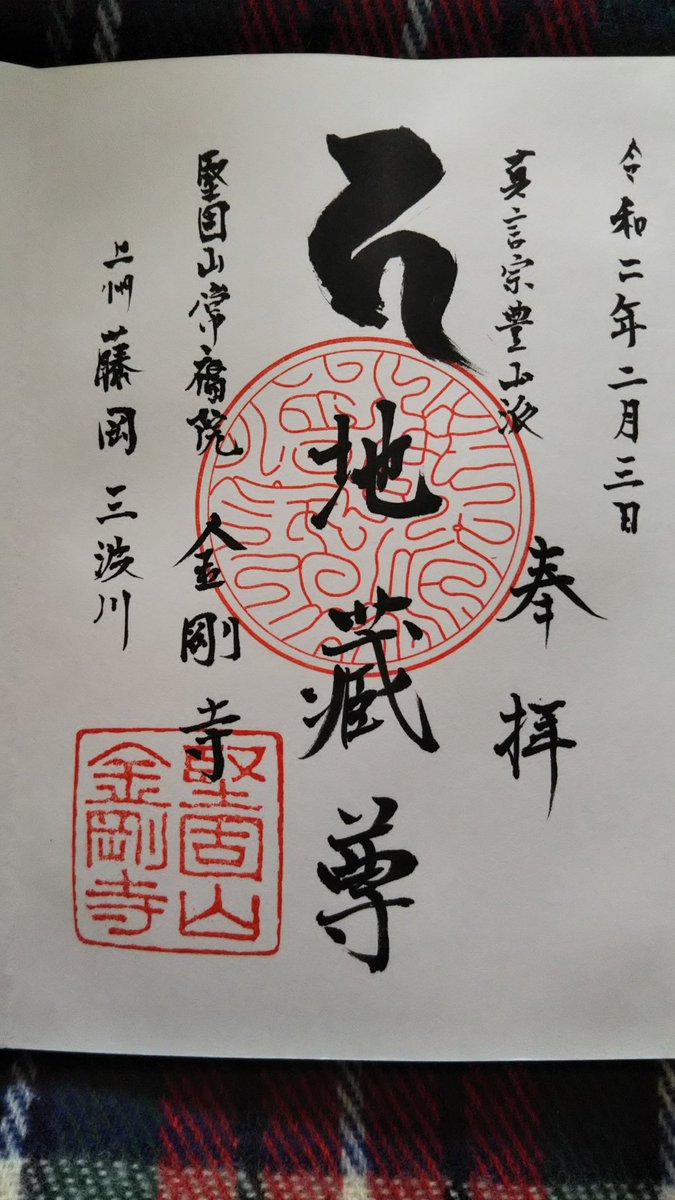 令和二年二月三日
真言宗豊山派
奉拝
地蔵尊
堅固山 金剛寺
上州 藤岡 三波川
堅固山
金剛寺